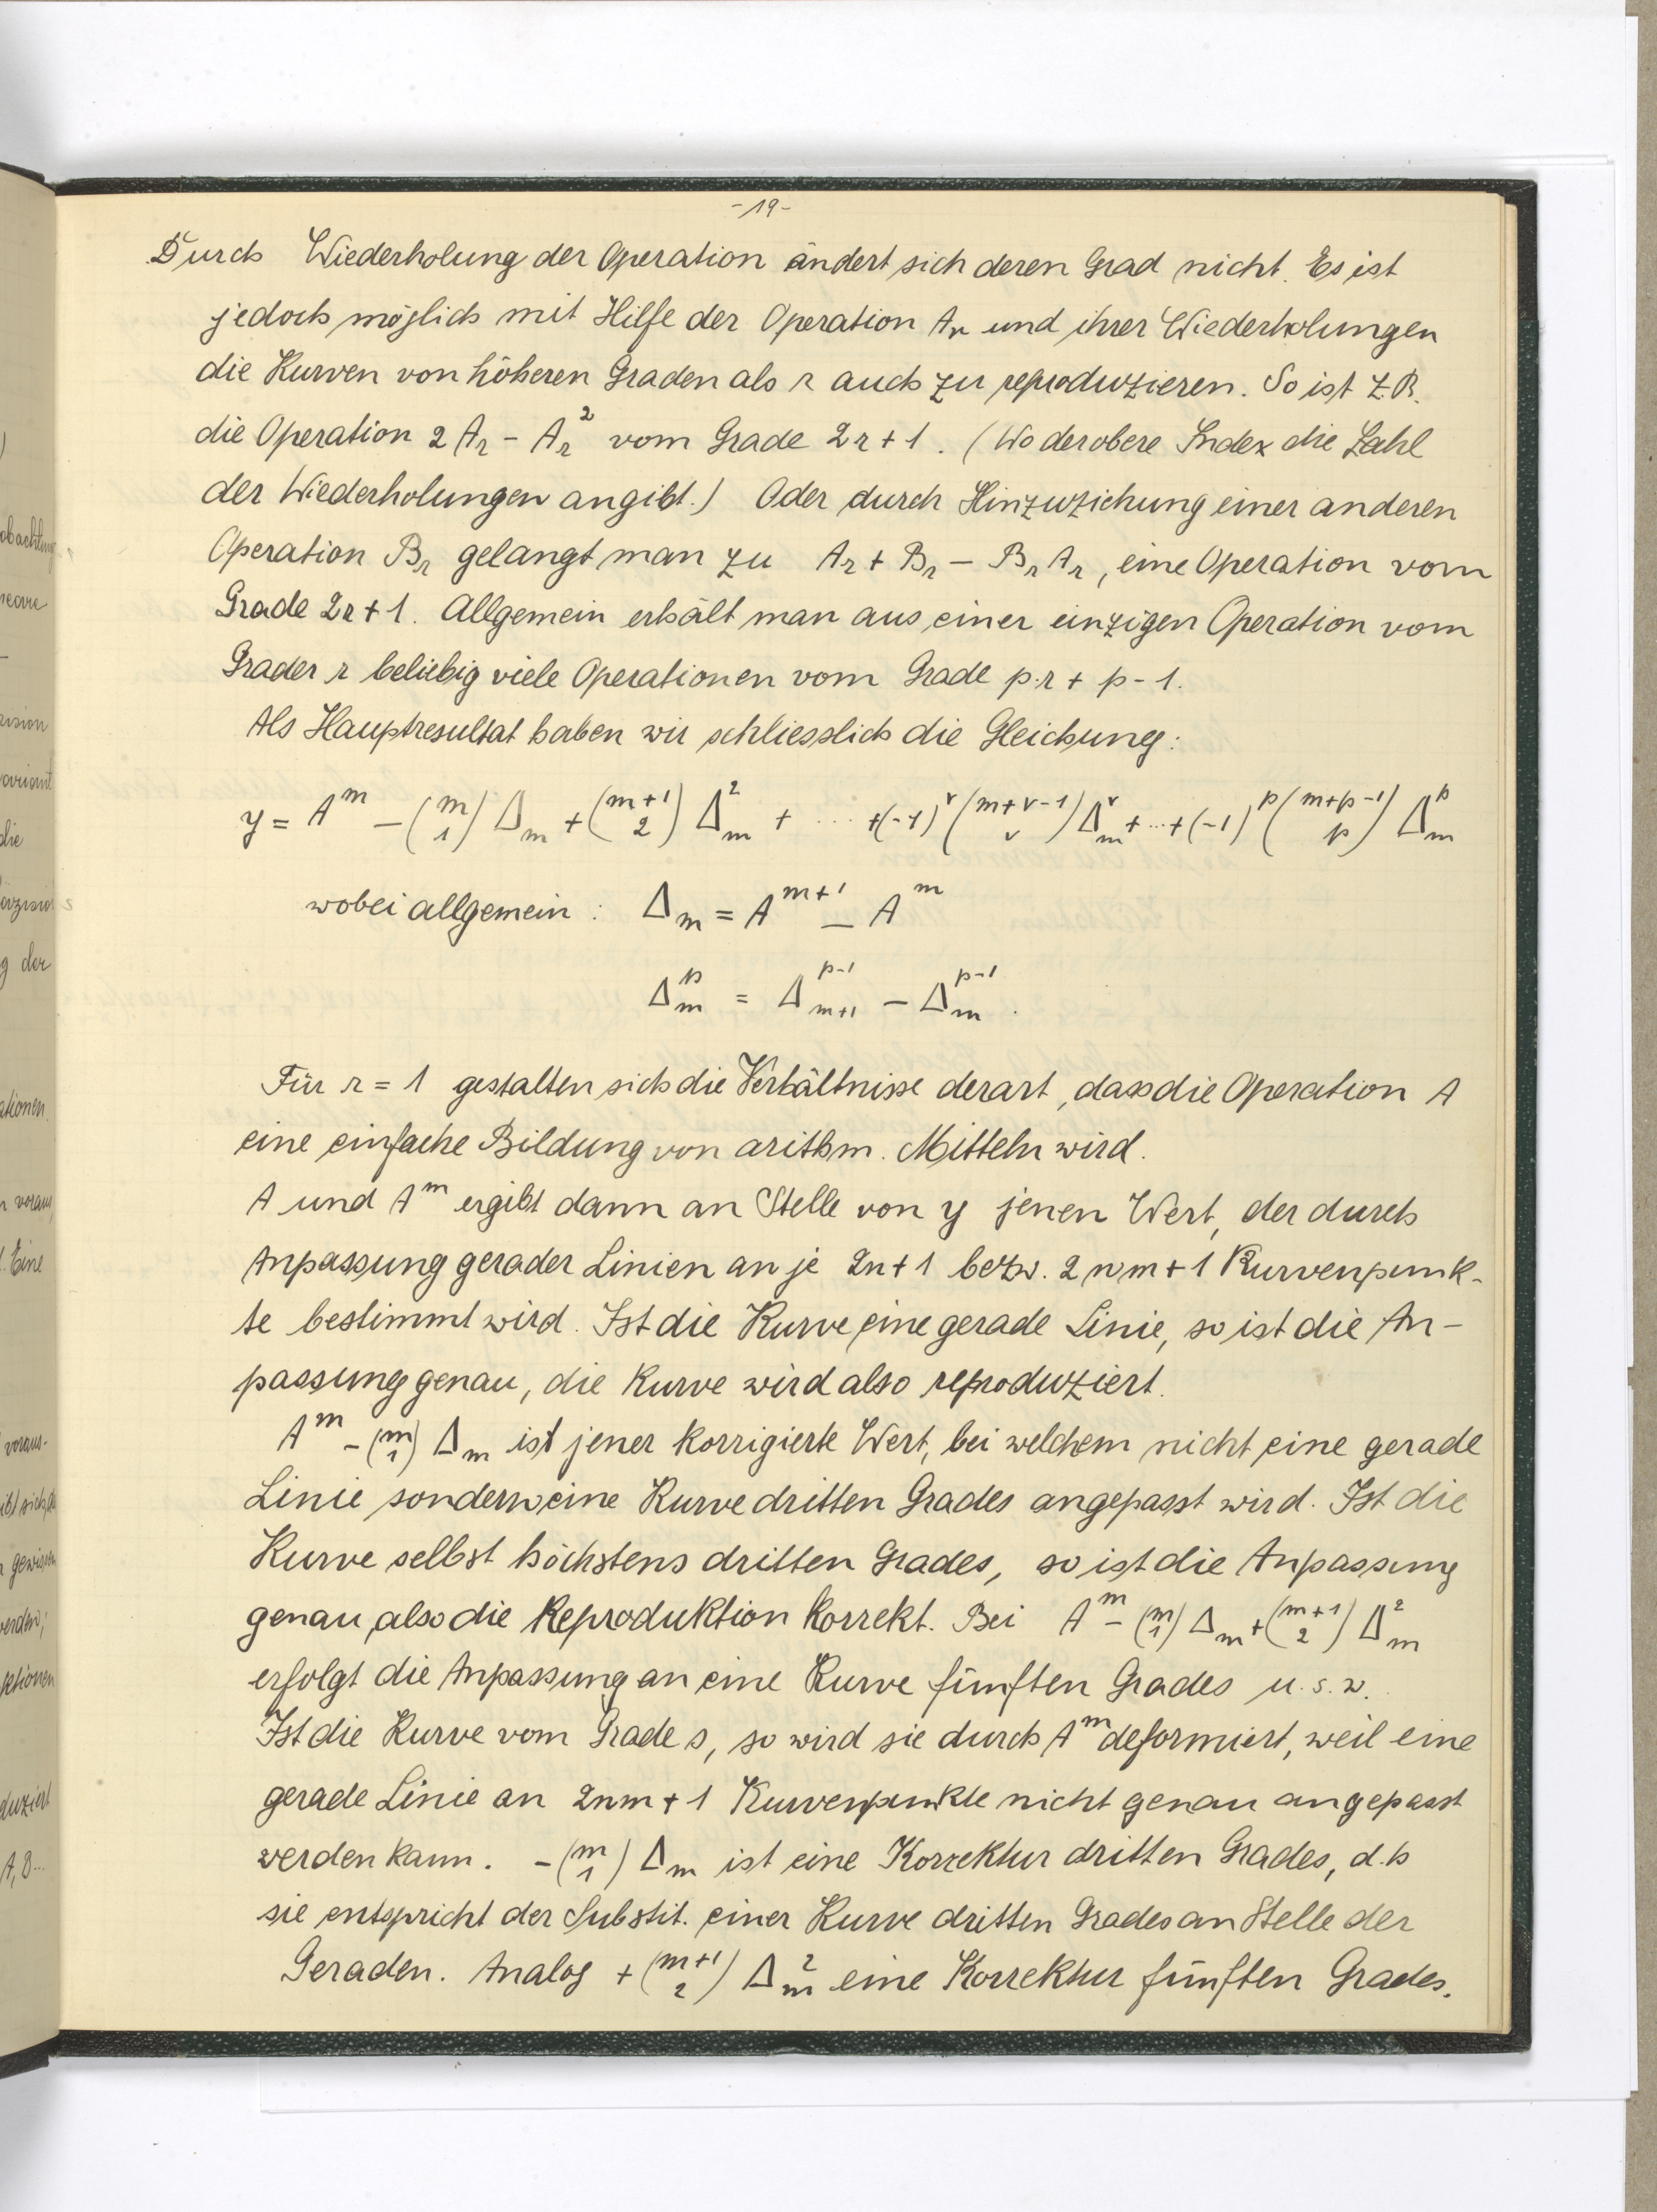 -19-
Durch Wiederholung der Operation ändert sich deren Grad nicht. Es ist
jedoch möglich mit Hilfe der Operation Aᵣ und ihrer Wiederholungen
die Kurven von höheren Graden als r auch zu reproduzieren. So ist z.B.
die Operation 2 Aᵣ - Aᵣ² vom Grade 2r + 1. (Wo der obere Index die Zahl
der Wiederholungen angibt.) Oder durch Hinzuziehung einer anderen
Operation Bᵣ gelangt man zu Aᵣ + Bᵣ - BᵣAᵣ, eine Operation vom
Grade 2r + 1. Allgemein erhält man aus einer einzigen Operation vom
Grader r beliebig viele Operationen vom Grade p.r + p - 1.
Als Hauptresultat haben wir schliesslich die Gleichung:
y = A^m - (m 1) Δ_m + (m+1 2) Δ_m^2 + ..... +(-1)^ν (m+ν-1 ν) Δ_m^ν + ... + (-1)^p (m+p-1 p) Δ_m^p
wobei allgemein : Δ_m = A^{m+1} - A^m
Δ_m^p = Δ_{m+1}^{p-1} - Δ_m^{p-1}.
Für r = 1 gestalten sich die Verhältnisse derart, dass die Operation A
eine einfache Bildung von arithm. Mitteln wird.
A und A^m ergibt dann an Stelle von y jenen Wert, der durch
Anpassung gerader Linien an je 2n + 1 bezw. 2nm + 1 Kurvenpunk-
te bestimmt wird. Ist die Kurve eine gerade Linie, so ist die An-
passung genau, die Kurve wird also reproduziert.
A^m - (m 1) Δ_m ist jener korrigierte Wert, bei welchem nicht eine gerade
Linie sondern eine Kurve dritten Grades angepasst wird. Ist die
Kurve selbst höchstens dritten Grades, so ist die Anpassung
genau, also die Reproduktion korrekt. Bei A^m - (m 1) Δ_m + (m+1 2) Δ_m^2
erfolgt die Anpassung an eine Kurve fünften Grades u.s.w.
Ist die Kurve vom Grade s, so wird sie durch A^m deformiert, weil eine
gerade Linie an 2nm + 1 Kurvenpunkte nicht genau angepasst
werden kann. - (m 1) Δ_m ist eine Korrektur dritten Grades, d.h
sie entspricht der Substit. einer Kurve dritten Grades an Stelle der
Geraden. Analog + (m+1 2) Δ_m^2 eine Korrektur fünften Grades.